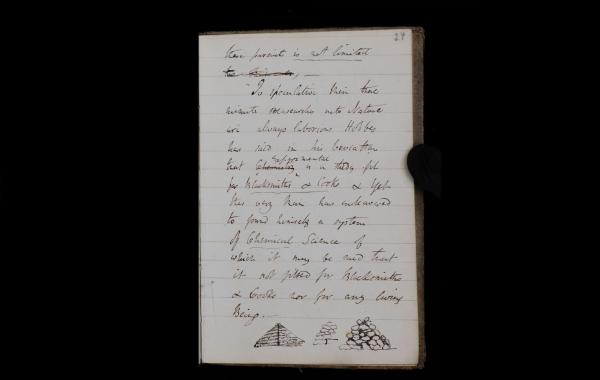 24
their pursuit is not limited
"To speculative Men these
minute researches into Nature
are always laborious Hobbes
has said in his Leviathan
experimental
that Chemistry is a study fit
for Blacksmiths & Cooks & Yet
this very Man has endeavored
to found himself a system
of Chemical Science of
which it may be said that
it not fitted for Blacksmiths
& Cooks nor for any living
Being.—